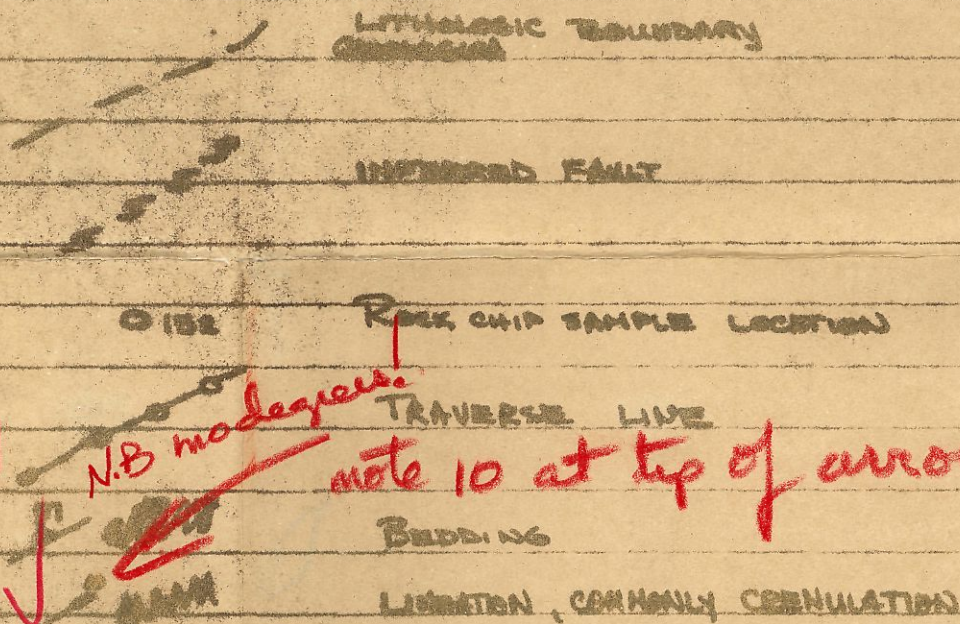 LITHOLOGIC BOUNDARY
INFERRED FAULT
O 152 ROCK CHIP SAMPLE LOCATION
N.B no degrees!
TRAVERSE LINE
note 10 at tip of arro
BEDDING
LINEATION, COMMONLY CRENULATION